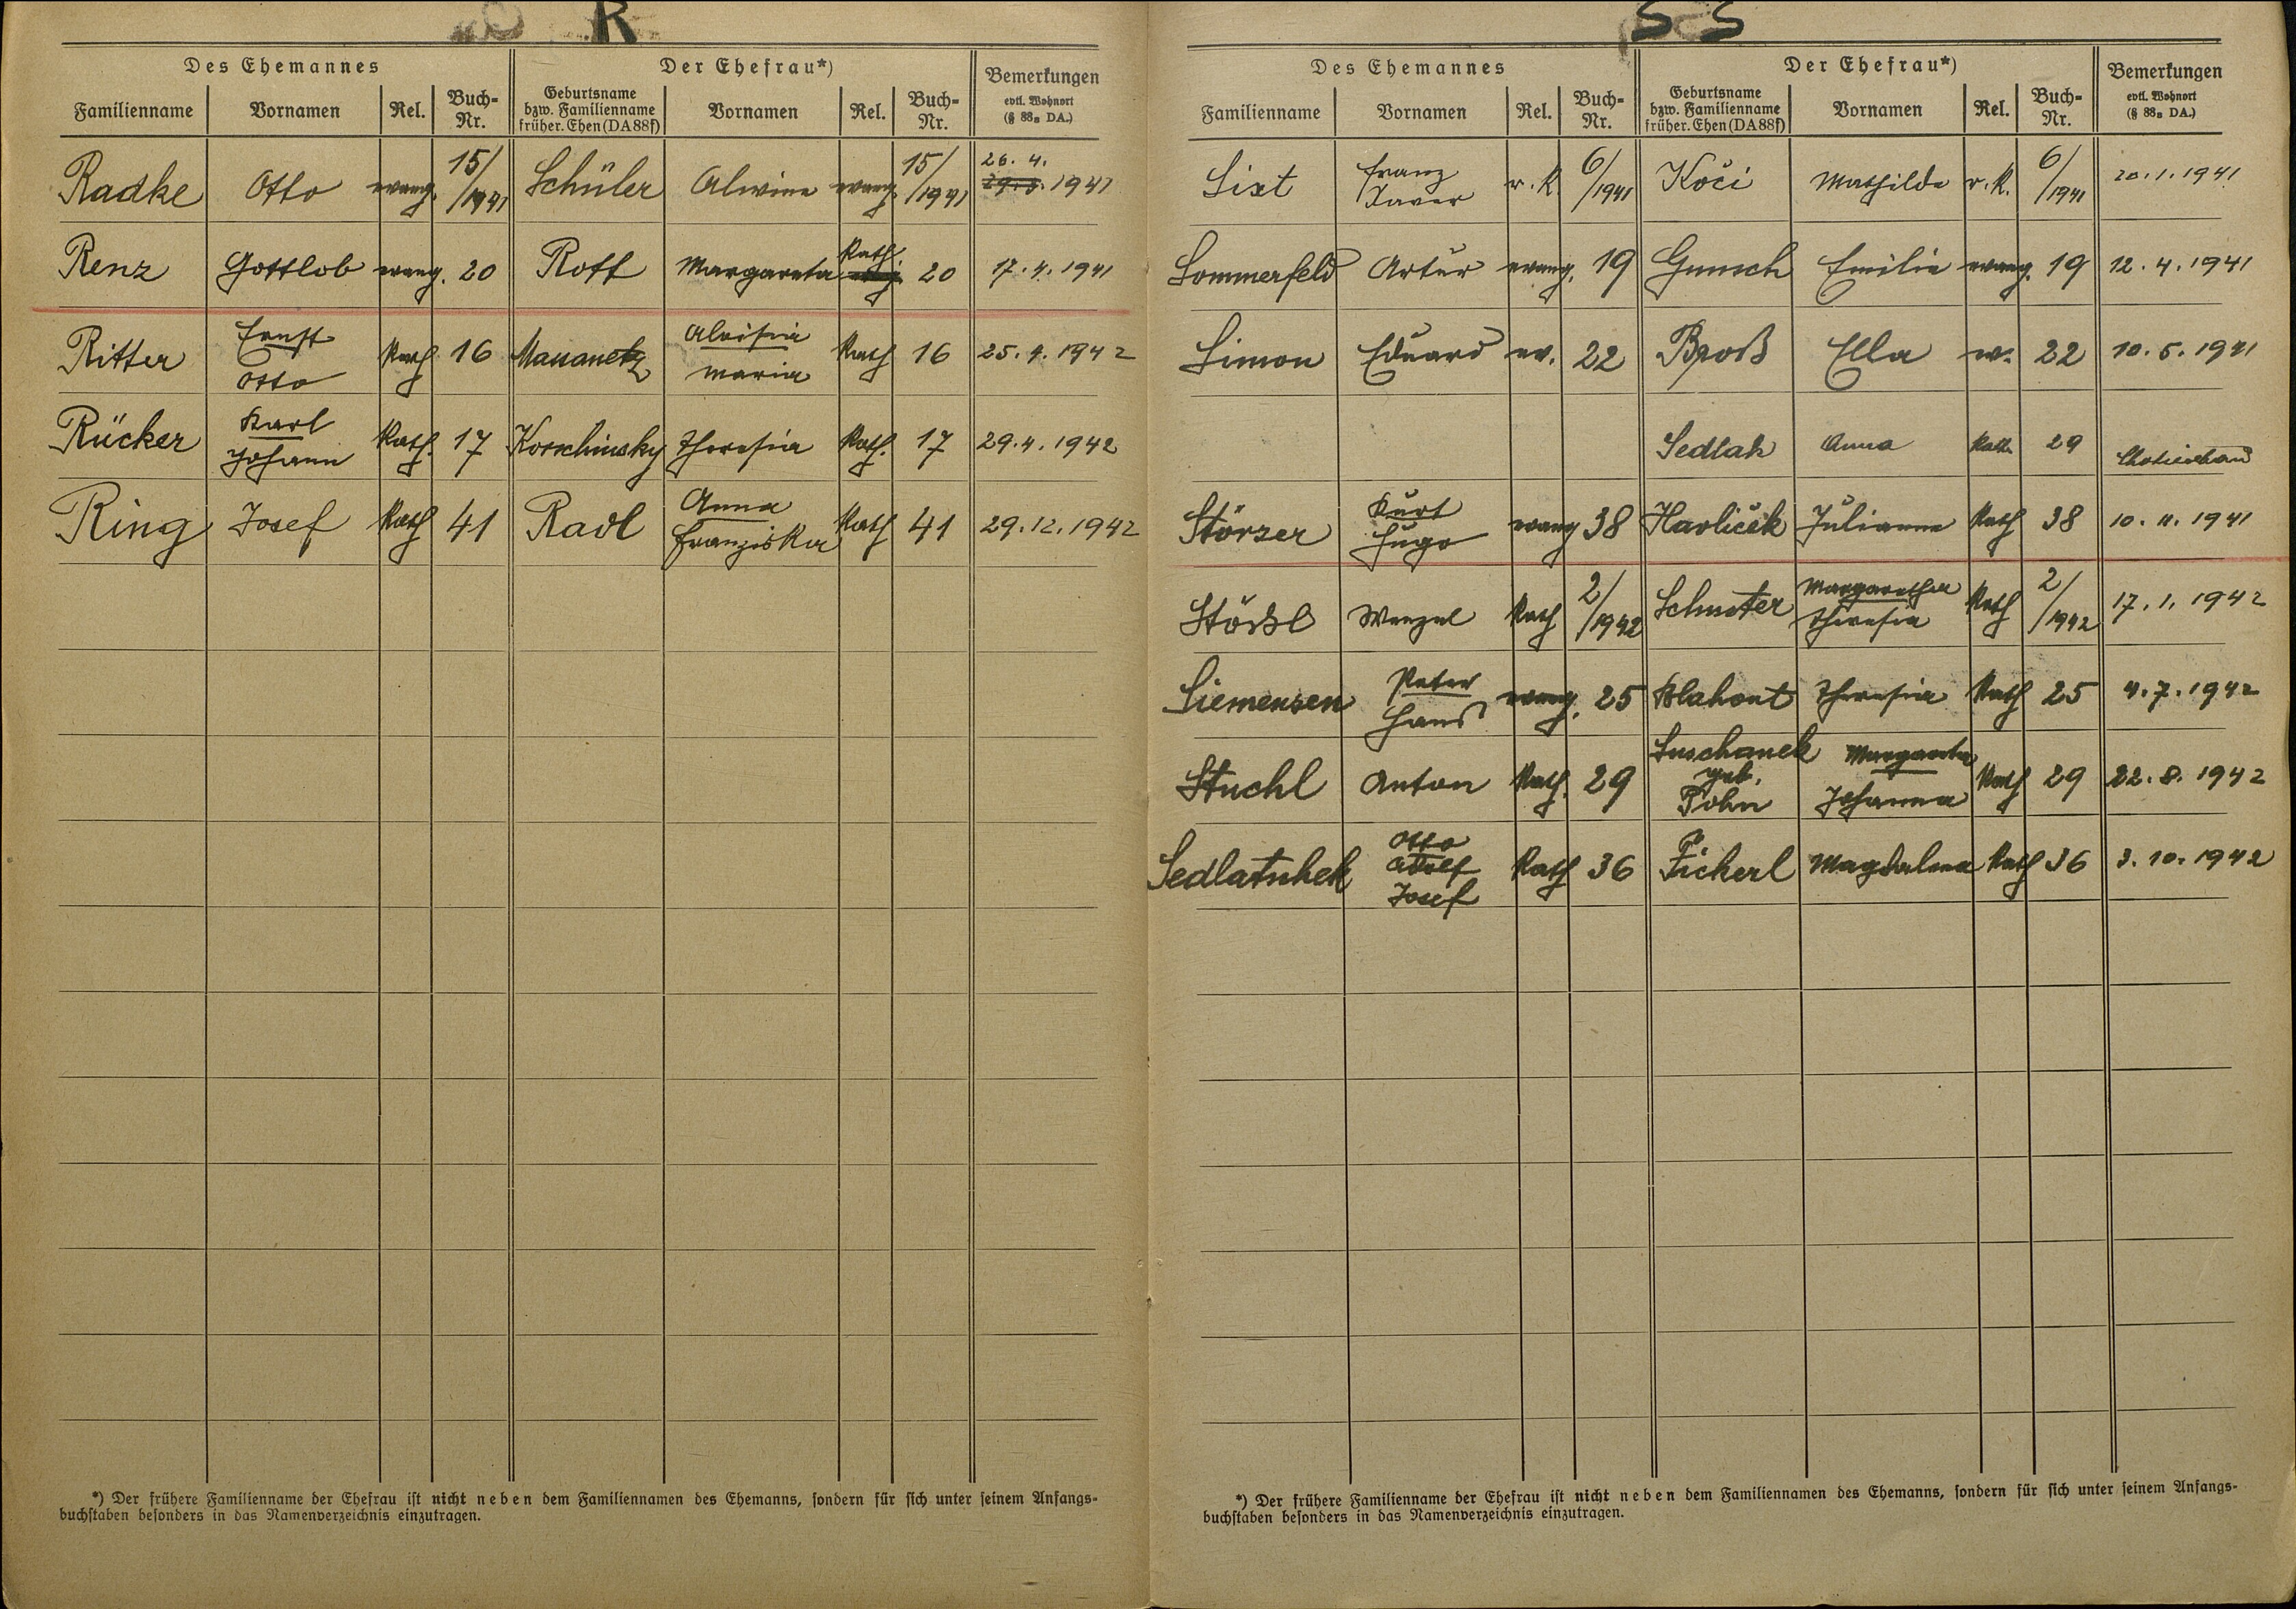 R
Des Ehemannes Der Ehefrau*) Bemerkungen evtl. Wohnort (§ 88n DA.)
Familienname Vornamen Rel. Buch-Nr. Geburtsname bzw. Familienname früher. Ehen (DA 88f) Vornamen Rel. Buch-Nr.
Radke Otto evang. 15/1941 Schüler Alwine evang. 15/1941 26. 4. 1941
Renz Gottlob evang. 20 Rott Margareta Kath. 20 17. 4. 1941
Ritter Ernst Otto Kath 16 Maria Kath 16 25. 4. 1942
Rücker Karl Johann Kath. 17 Korschinsky Theresia Kath. 17 29. 4. 1942
Ring Josef Kath 41 Radl Anna Franziska Kath 41 29. 12. 1942
*) Der frühere Familienname der Ehefrau ist nicht neben dem Familiennamen des Ehemanns, sondern für sich unter seinem Anfangs-
buchstaben besonders in das Namenverzeichnis einzutragen.
S S
Des Ehemannes Der Ehefrau*) Bemerkungen evtl. Wohnort (§ 88n DA.)
Familienname Vornamen Rel. Buch-Nr. Geburtsname bzw. Familienname früher. Ehen (DA 88f) Vornamen Rel. Buch-Nr.
Sixt Franz Xaver r. k. 6/1941 Koči Mathilde r. k. 6/1941 20. 1. 1941
Sommerfeld Artur evang. 19 Gunsch Emilie evang. 19 12. 4. 1941
Simon Eduard ev. 22 Broß Ella ev. 22 10. 5. 1941
Sedlak Anna Kath. 29
Störzer Kurt Hugo evang 38 Havliček Julianne Kath 38 10. 11. 1941
Stößl Wenzel Kath 2/1942 Schuster Margaretha Theresia Kath 2/1942 17. 1. 1942
Siemensen Peter Hans evang. 25 Blahout Theresia Kath 25 4. 7. 1942
Stuchl Anton Kath. 29 Suschanek geb. Margareta Johanna Kath 29 22. 8. 1942
Sedlatschek Otto Adolf Josef Kath 36 Fickerl Magdalena Kath 36 3. 10. 1942
*) Der frühere Familienname der Ehefrau ist nicht neben dem Familiennamen des Ehemanns, sondern für sich unter seinem Anfangs-
buchstaben besonders in das Namenverzeichnis einzutragen.